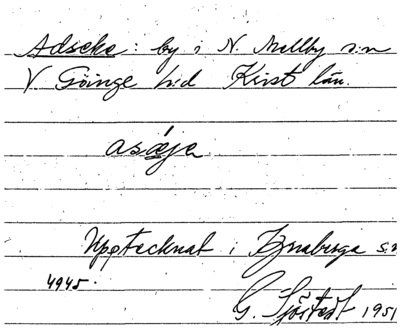 Adseke: by i N. Mellby sn
V Göinge hd Krist län.
asæja
Upptecknat i Ignaberga sn
4945.
G. Sjöstedt 1951